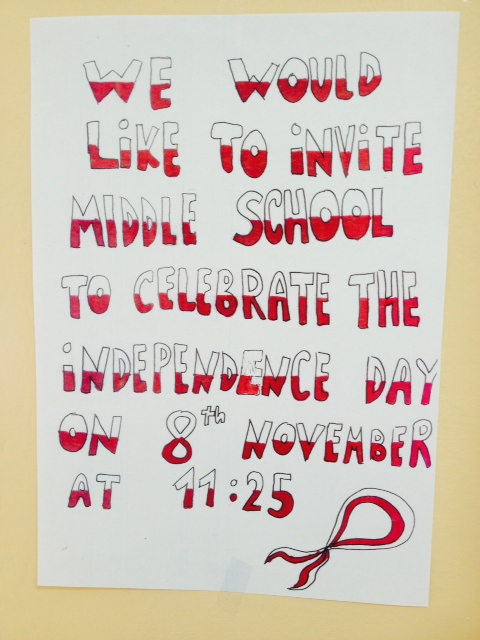 WE WOULD
LiKE TO iNViTE
MIDDLE SCHOOL
TO CELEBRATE THE
iNDEPENDENCE DAY
ON 8th NOVEMBER
AT 11:25